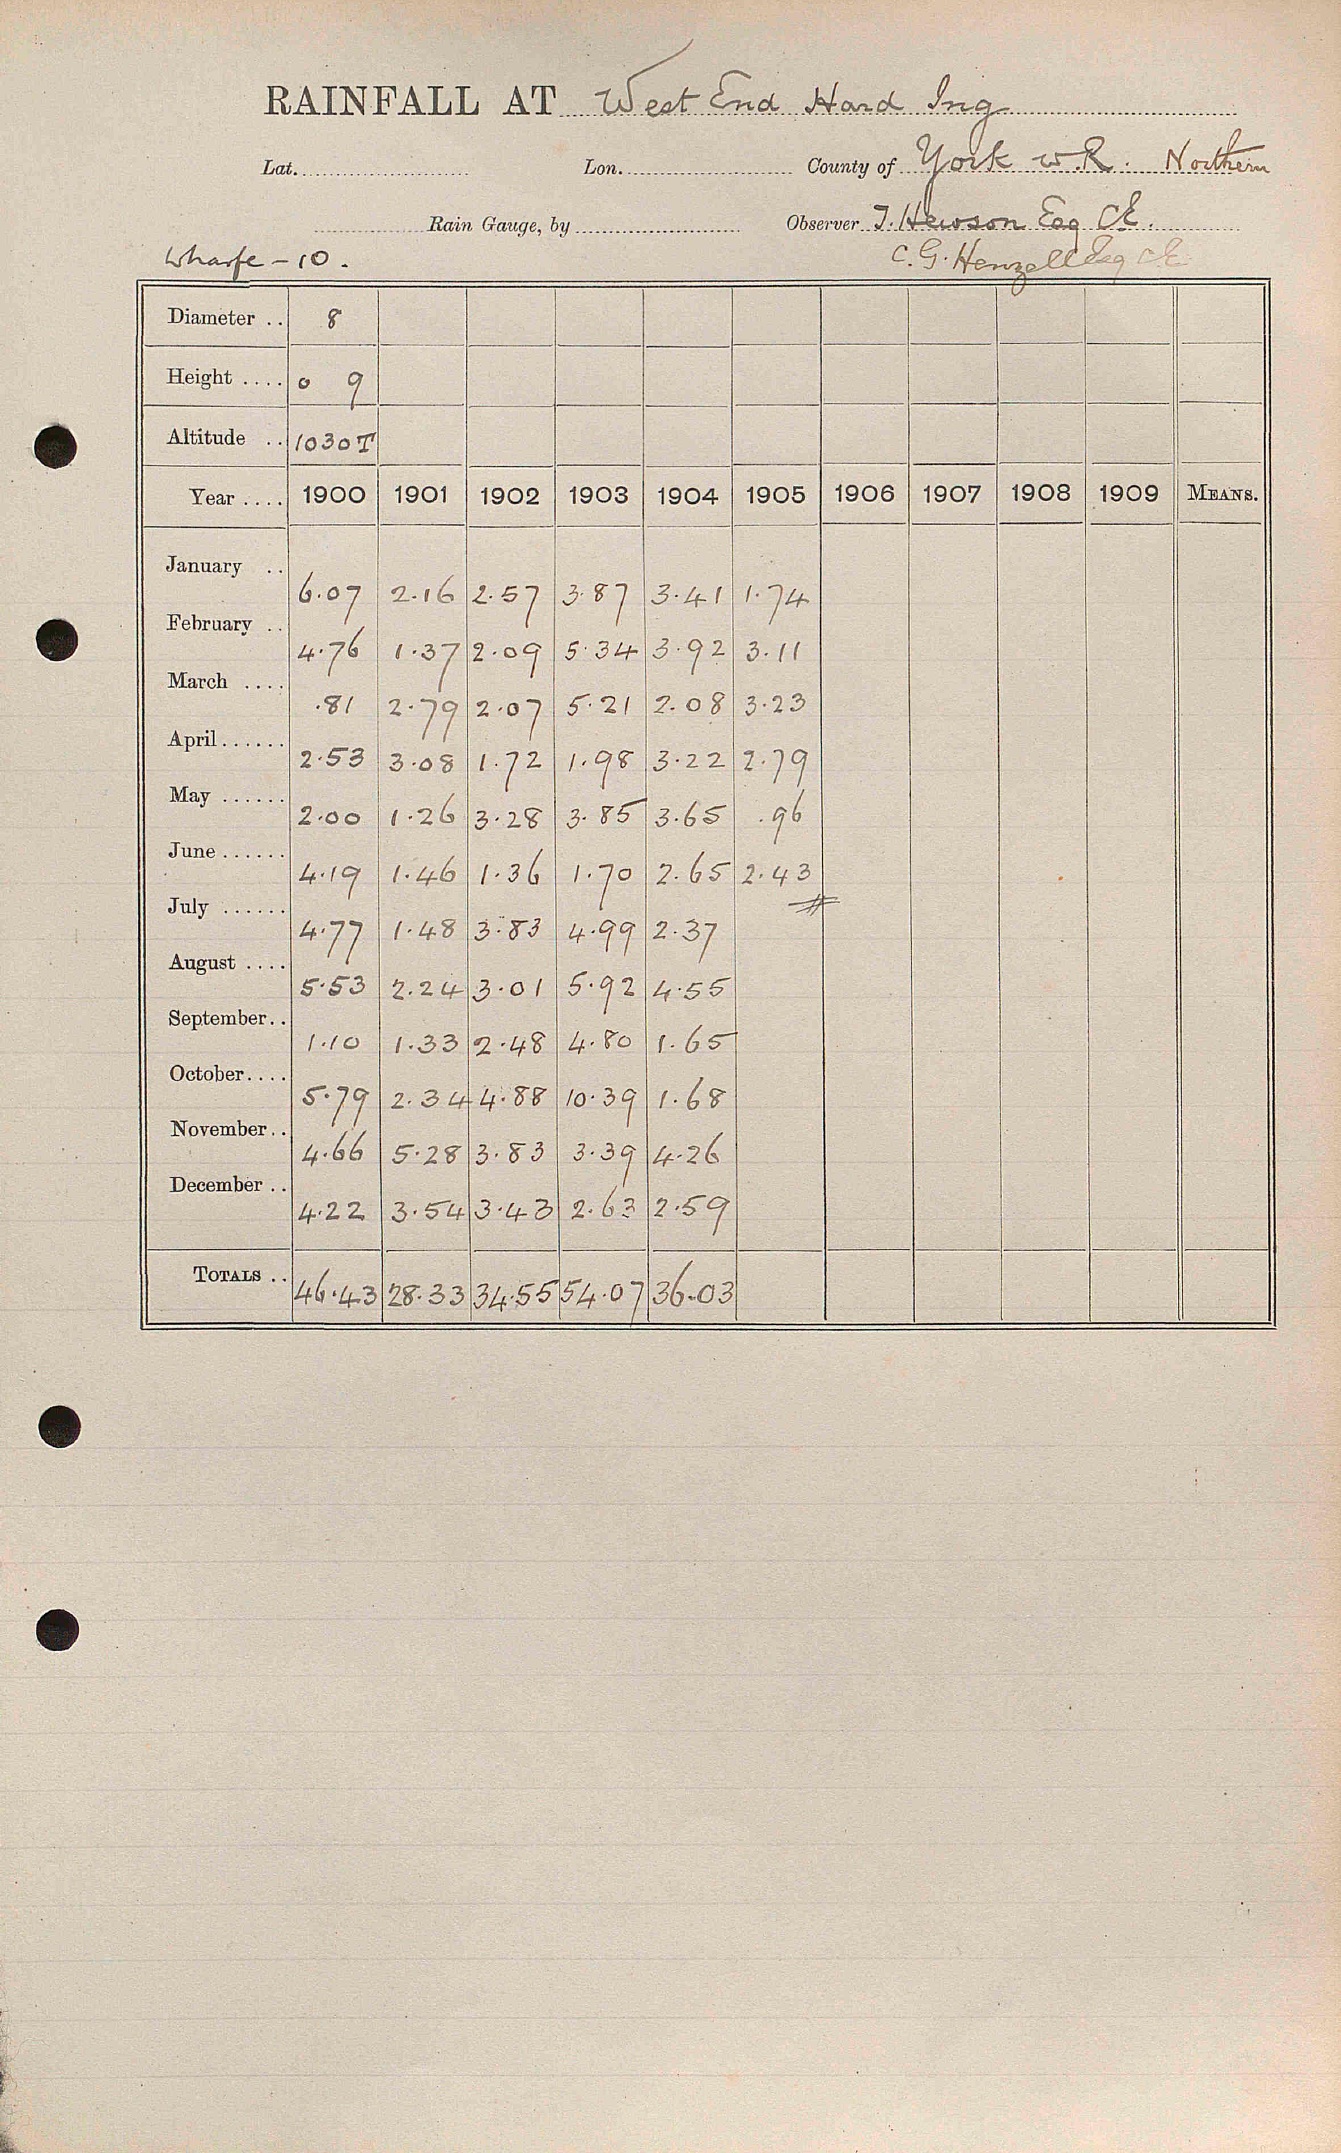 RAINFALL AT West End Hard Ing
Lat. Lon. County of York W.R. Northern
Rain Gauge, by Observer T. Hewson Esq CE.
Wharfe - 10. C. G. Henzell Esq CE
Diameter .. 8
Height .... 0 9
Altitude .. 1030T
Year .... 1900 1901 1902 1903 1904 1905 1906 1907 1908 1909 MEANS.
January .. 6.07 2.16 2.57 3.87 3.41 1.74
February .. 4.76 1.37 2.09 5.34 3.92 3.11
March .... .81 2.79 2.07 5.21 2.08 3.23
April...... 2.53 3.08 1.72 1.98 3.22 2.79
May ...... 2.00 1.26 3.28 3.85 3.65 .96
June...... 4.19 1.46 1.36 1.70 2.65 2.43
July ...... 4.77 1.48 3.83 4.99 2.37
August .... 5.53 2.24 3.01 5.92 4.55
September.. 1.10 1.33 2.48 4.80 1.65
October.... 5.79 2.34 4.88 10.39 1.68
November.. 4.66 5.28 3.83 3.39 4.26
December .. 4.22 3.54 3.43 2.63 2.59
TOTALS .. 46.43 28.33 34.55 54.07 36.03